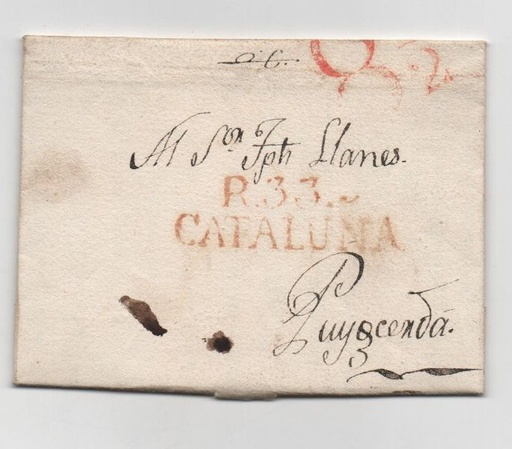 Al Sor. Jph Llanes.
R.33.
CATALUÑA
Puygcerdá.